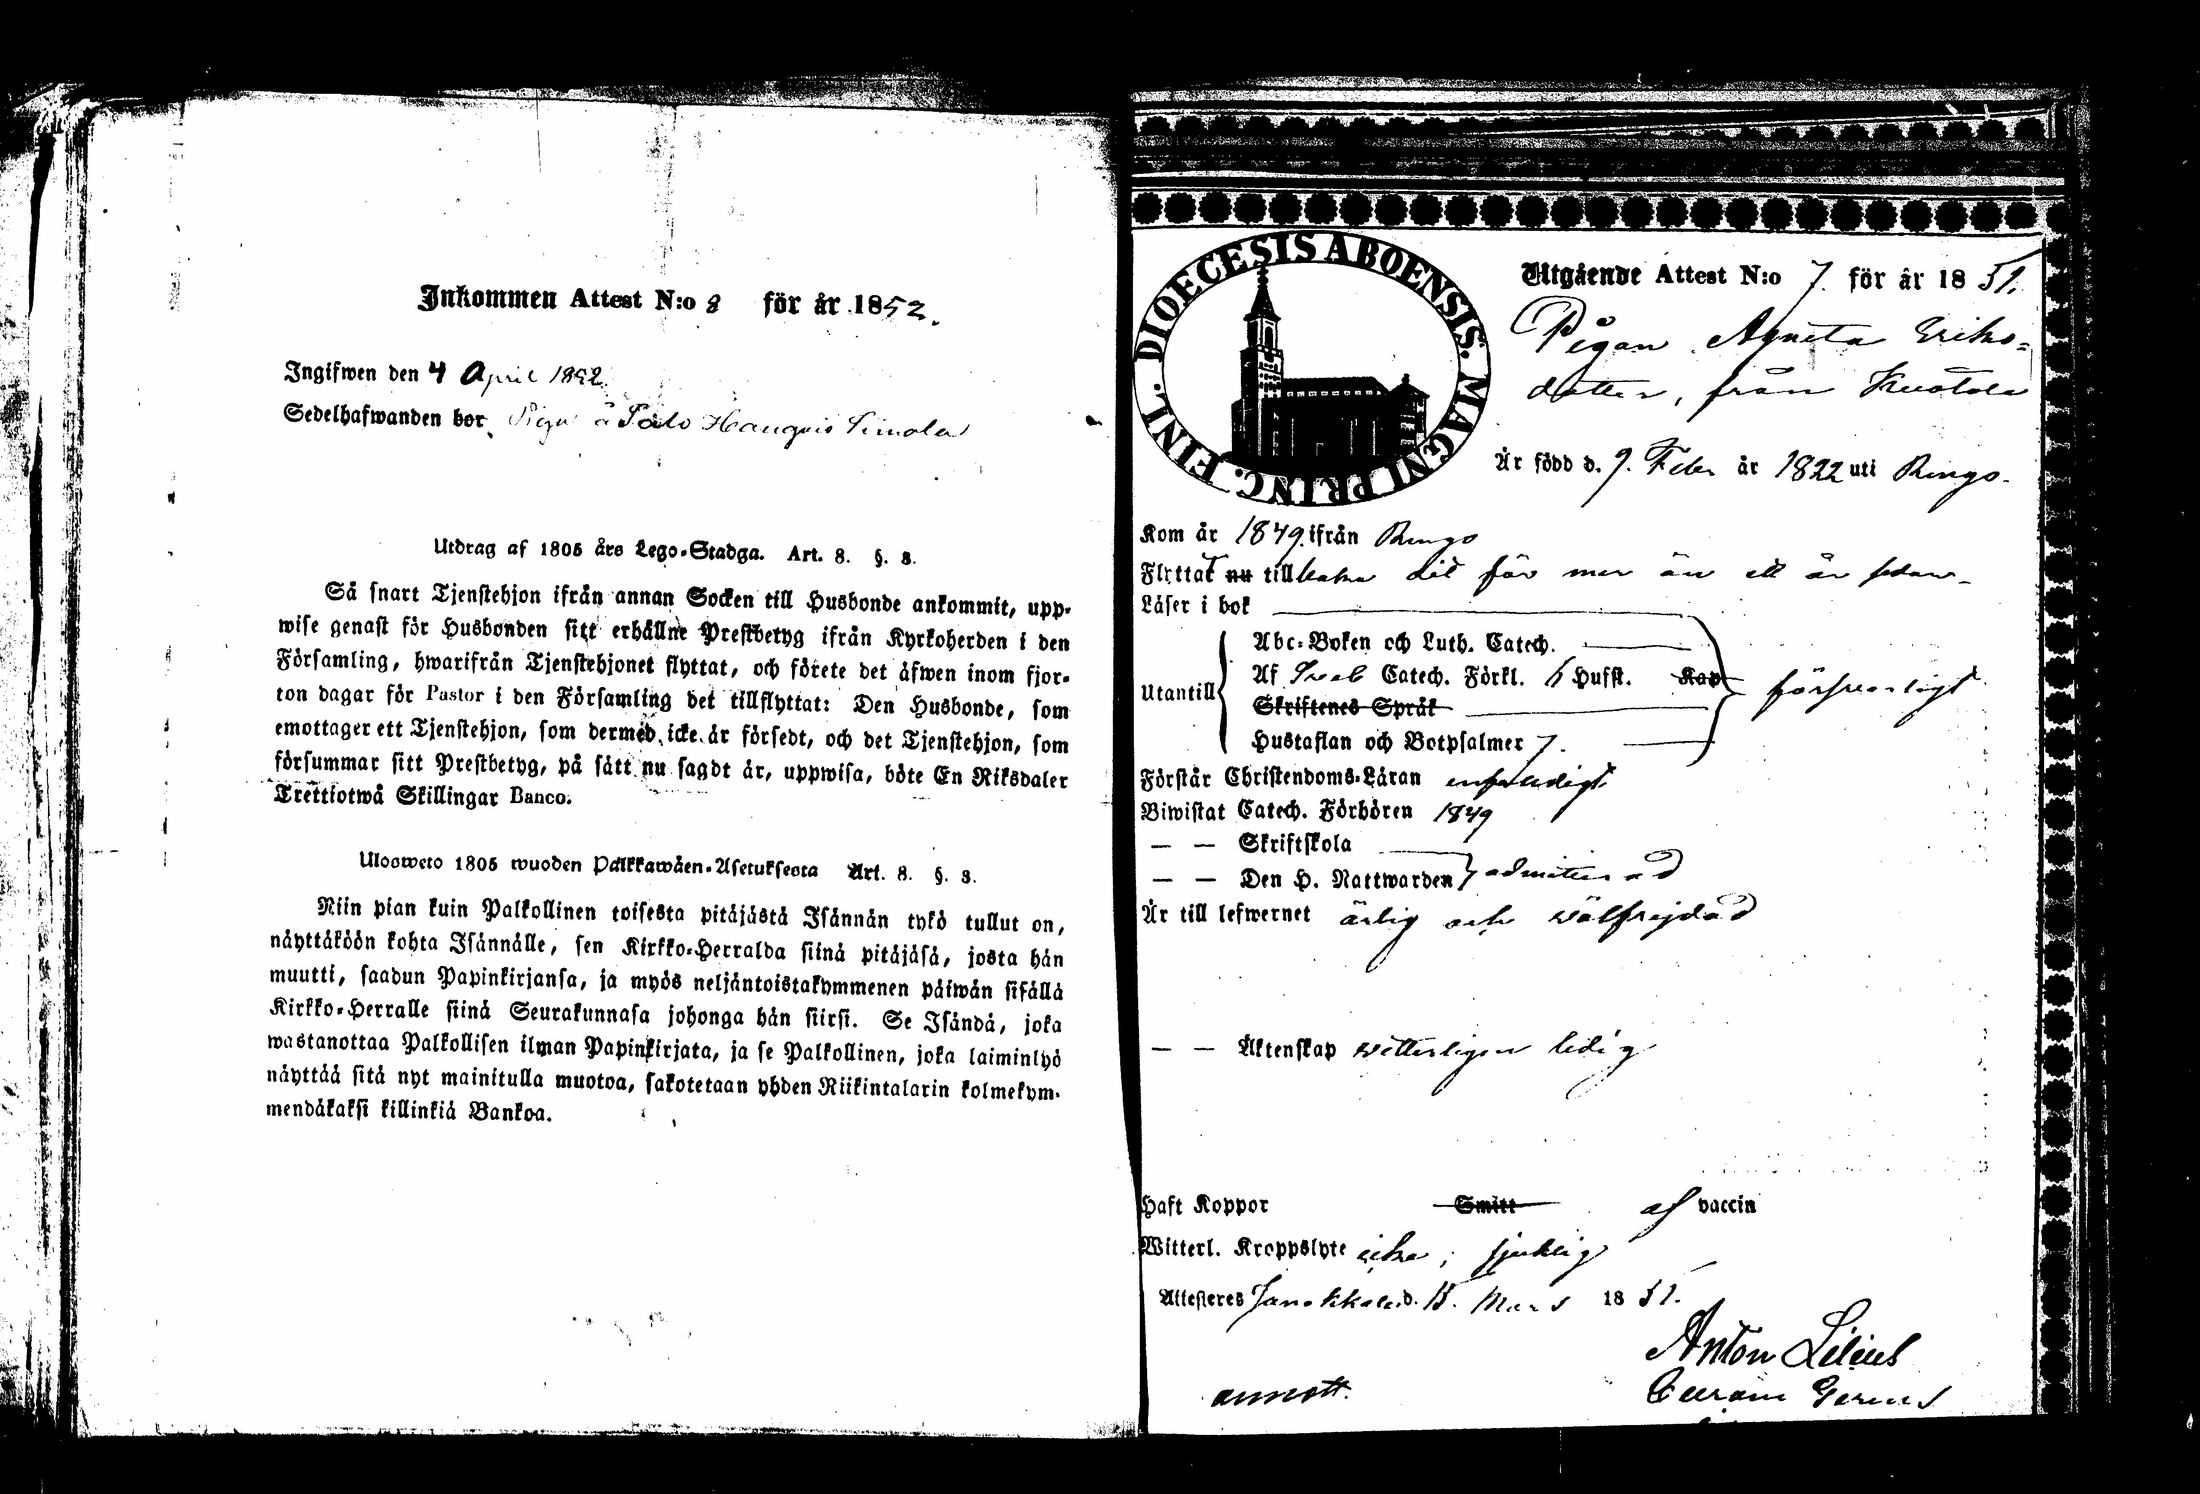 Inkommen Attest N:o 8 för år 1852.
Ingifwen den 4 April 1852.
Sedelhafwanden bor
Utdrag af 1805 års Lego-Stadga. Art. 8. §. 3.
Så snart Tjenstehjon ifrån annan Socken till Husbonde ankommit, upp-
wise genast för Husbonden sitt erhållne Prestbetyg ifrån Kyrkoherden i den
Församling, hwarifrån Tjenstehjonet flyttat, och förete det äfwen inom fjor-
ton dagar för Pastor i den Församling det tillflyttat: Den Husbonde, som
emottager ett Tjenstehjon, som dermed icke är försedt, och det Tjenstehjon, som
försummar sitt Prestbetyg, på sätt nu sagdt är, uppwisa, böte En Riksdaler
Trettiotwå Skillingar Banco.
Ulosweto 1805 wuoden Palkkawäen-Asetuksesta Art. 8. §. 3.
Niin pian kuin Palkollinen toisesta pitäjästä Isännän tykö tullut on,
näyttäköön kohta Isännälle, sen Kirkko-Herralda siinä pitäjäsä, josta hän
muutti, saadun Papinkirjansa, ja myös neljäntoistakymmenen päiwän sisällä
Kirkko-Herralle siinä Seurakunnasa johonga hän siirsi. Se Isändä, joka
wastanottaa Palkollisen ilman Papinkirjata, ja se Palkollinen, joka laiminlyö
näyttää sitä nyt mainitulla muotoa, sakotetaan yhden Riikintalarin kolmekym-
mendäkaksi killinkiä Bankoa.
DIOECESIS ABOENSIS. MAGNI PRINC. FINL.
Utgående Attest N:o 7. för år 1851.
Pigan Agneta Eriks-
dotter, från
Är född d. 9. Febr år 1822 uti Rengo.
Kom år 1849. ifrån Rengo
Flyttat nu tillbaka dit för mer än ett år sedan
Läser i bok
Abc-Boken och Luth. Catech.
Utantill Af Sveb Catech. Förkl. Husst. Kap försvarligt
Skriftenes Språk
Hustaflan och Botpsalmer 7.
Förstår Christendoms-Läran enfaldigt
Biwistat Catech. Förhören 1849
— — Skriftskola
— — Den H. Nattwarden admitterad
Är till lefwernet ärlig och välfrejdad
— — Äktenskap witterligen ledig
Haft Koppor Smitt af vaccin
Witterl. Kroppslyte icke; sjuklig
Attesteres Janakkala d. 15. Mars 1851.
Anton Lilius
annott.